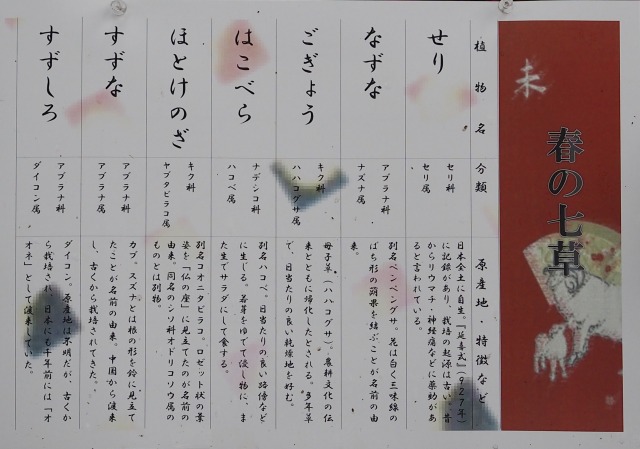 未
春の七草
植物名
分類
原産地・特徴など
せり
セリ科
セリ属
日本全土に自生。『延喜式』(927年)
に記録があり、栽培の起源は古い。昔
からリウマチ・神経痛などに薬効があ
ると言われている。
なずな
アブラナ科
ナズナ属
別名ペンペングサ。花は白く三味線の
ばち形の蒴果を結ぶことが名前の由
来。
ごぎょう
キク科
ハハコグサ属
母子草、(ハハコグサ)。農耕文化の伝
来とともに帰化したとされる。多年草
で、日当たりの良い乾燥地を好む。
はこべら
ナデシコ科
ハコベ属
別名ハコベ。日当たりの良い路傍など
に生じる。若芽をゆでて浸し物に、ま
た生でサラダにして食する。
ほとけのざ
キク科
ヤブタビラコ属
別名コオニタビラコ。ロゼット状の葉
姿を「仏の座」に見立てたのが名前の
由来。同名のシソ科オドリコソウ属の
ものとは別物。
すずな
アブラナ科
アブラナ属
カブ。スズナとは根の形を鈴に見立て
たことが名前の由来。中国から渡来
し、古くから栽培されてきた。
すずしろ
アブラナ科
ダイコン属
ダイコン。原産地は不明だが、古くか
ら栽培され、日本にも千年前には「オ
オネ」として渡来していた。